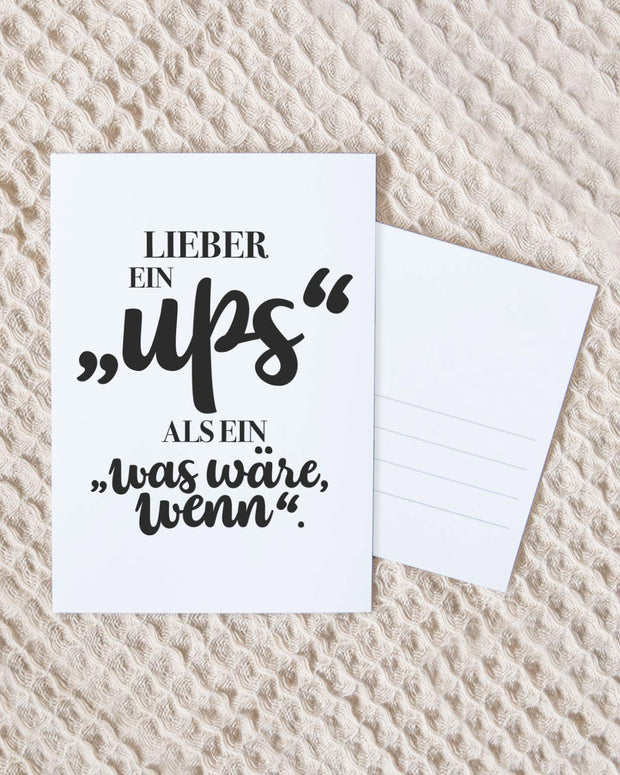 LIEBER
EIN
„ups“
ALS EIN
„was wäre,
wenn“.